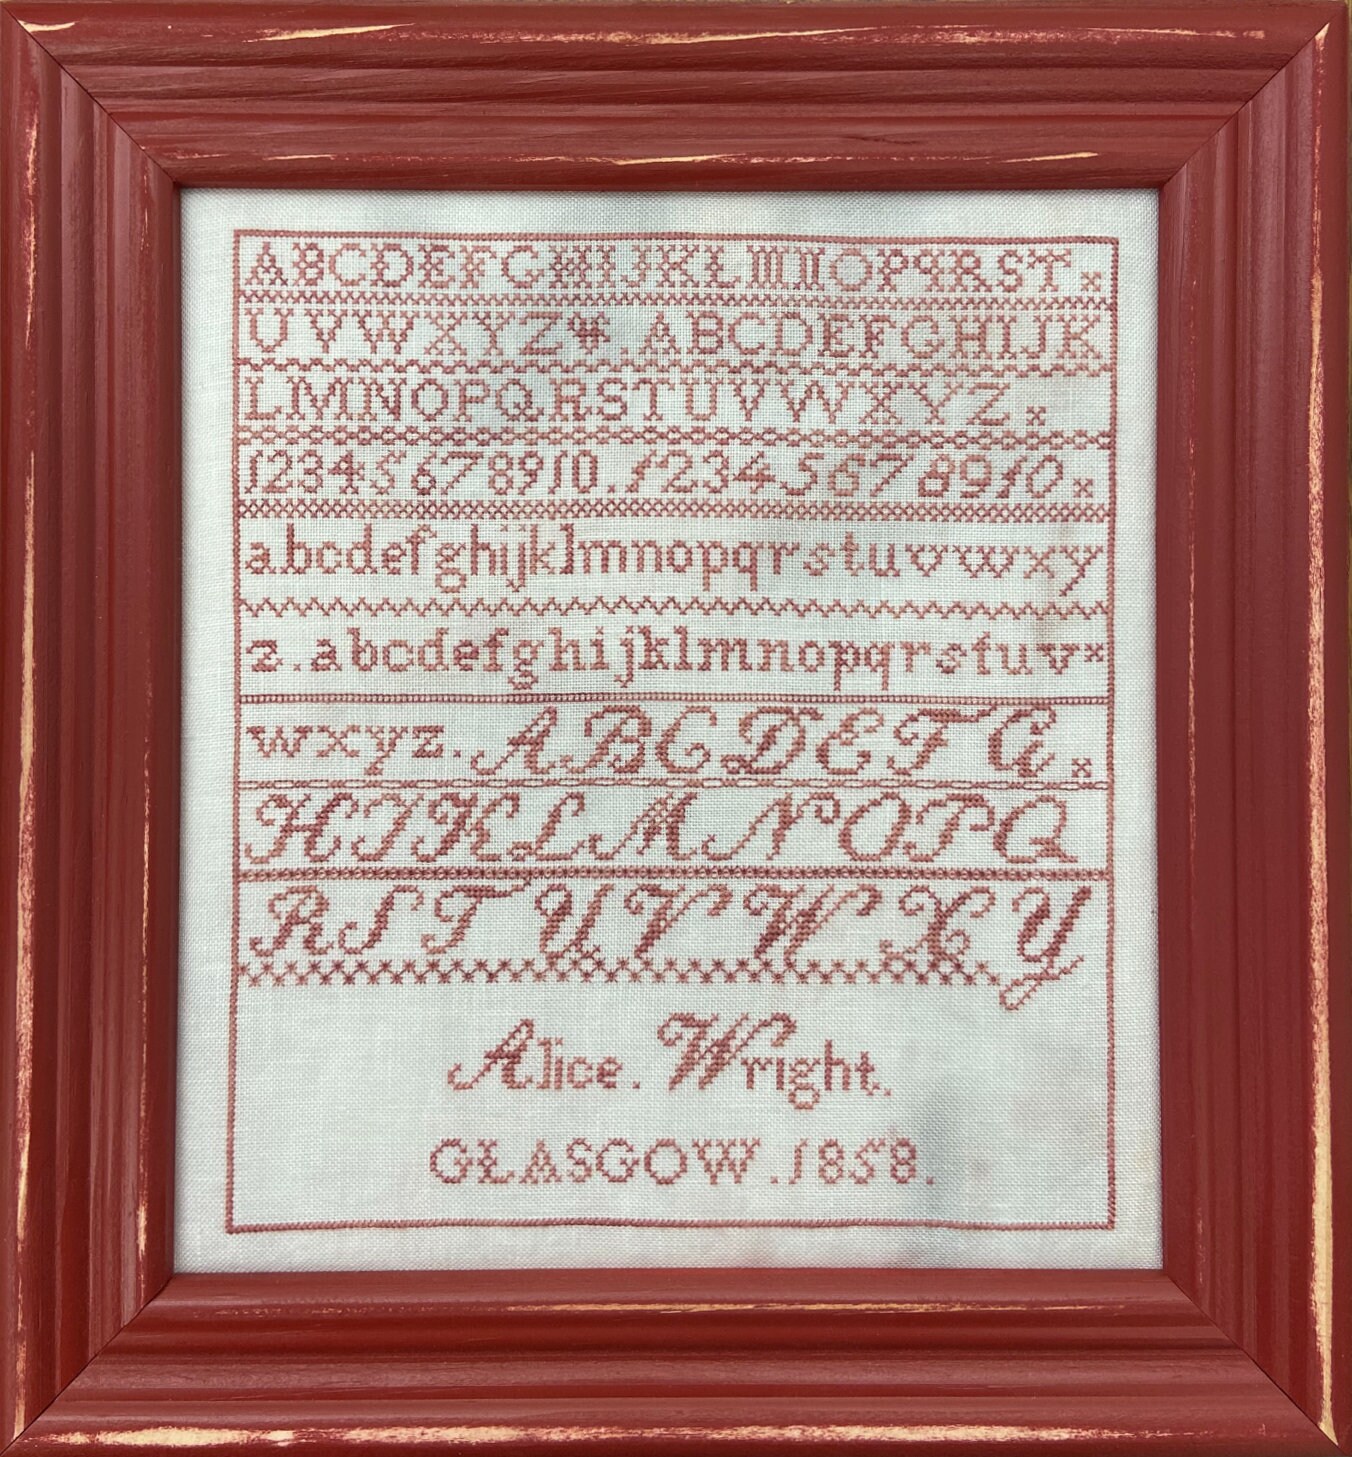 ABCDEFGHIJKLMNOPQRST
UVWXYZ.ABCDEFGHIJK
LMNOPQRSTUVWXYZ.
12345678910.12345678910.
abcdefghijklmnopqrstuvwxy
z.abcdefghijklmnopqrstuv
wxyz.ABCDEFG.
HIKLMNOPQ
RSTUVWXY
Alice. Wright.
GLASGOW.1858.